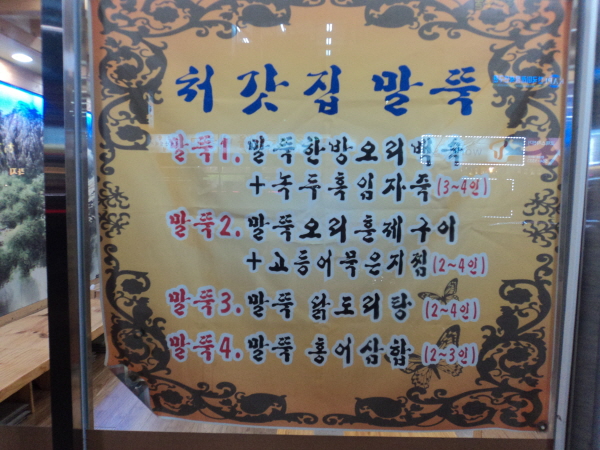 처갓집 말뚝
말뚝1. 말뚝한방오리백숙
+녹두흑임자죽(3~4인)
말뚝2. 말뚝오리훈제구이
+고등어묵은지찜(2~4인)
말뚝3. 말뚝 닭도리탕 (2~4인)
말뚝4. 말뚝 홍어삼합 (2~3인)